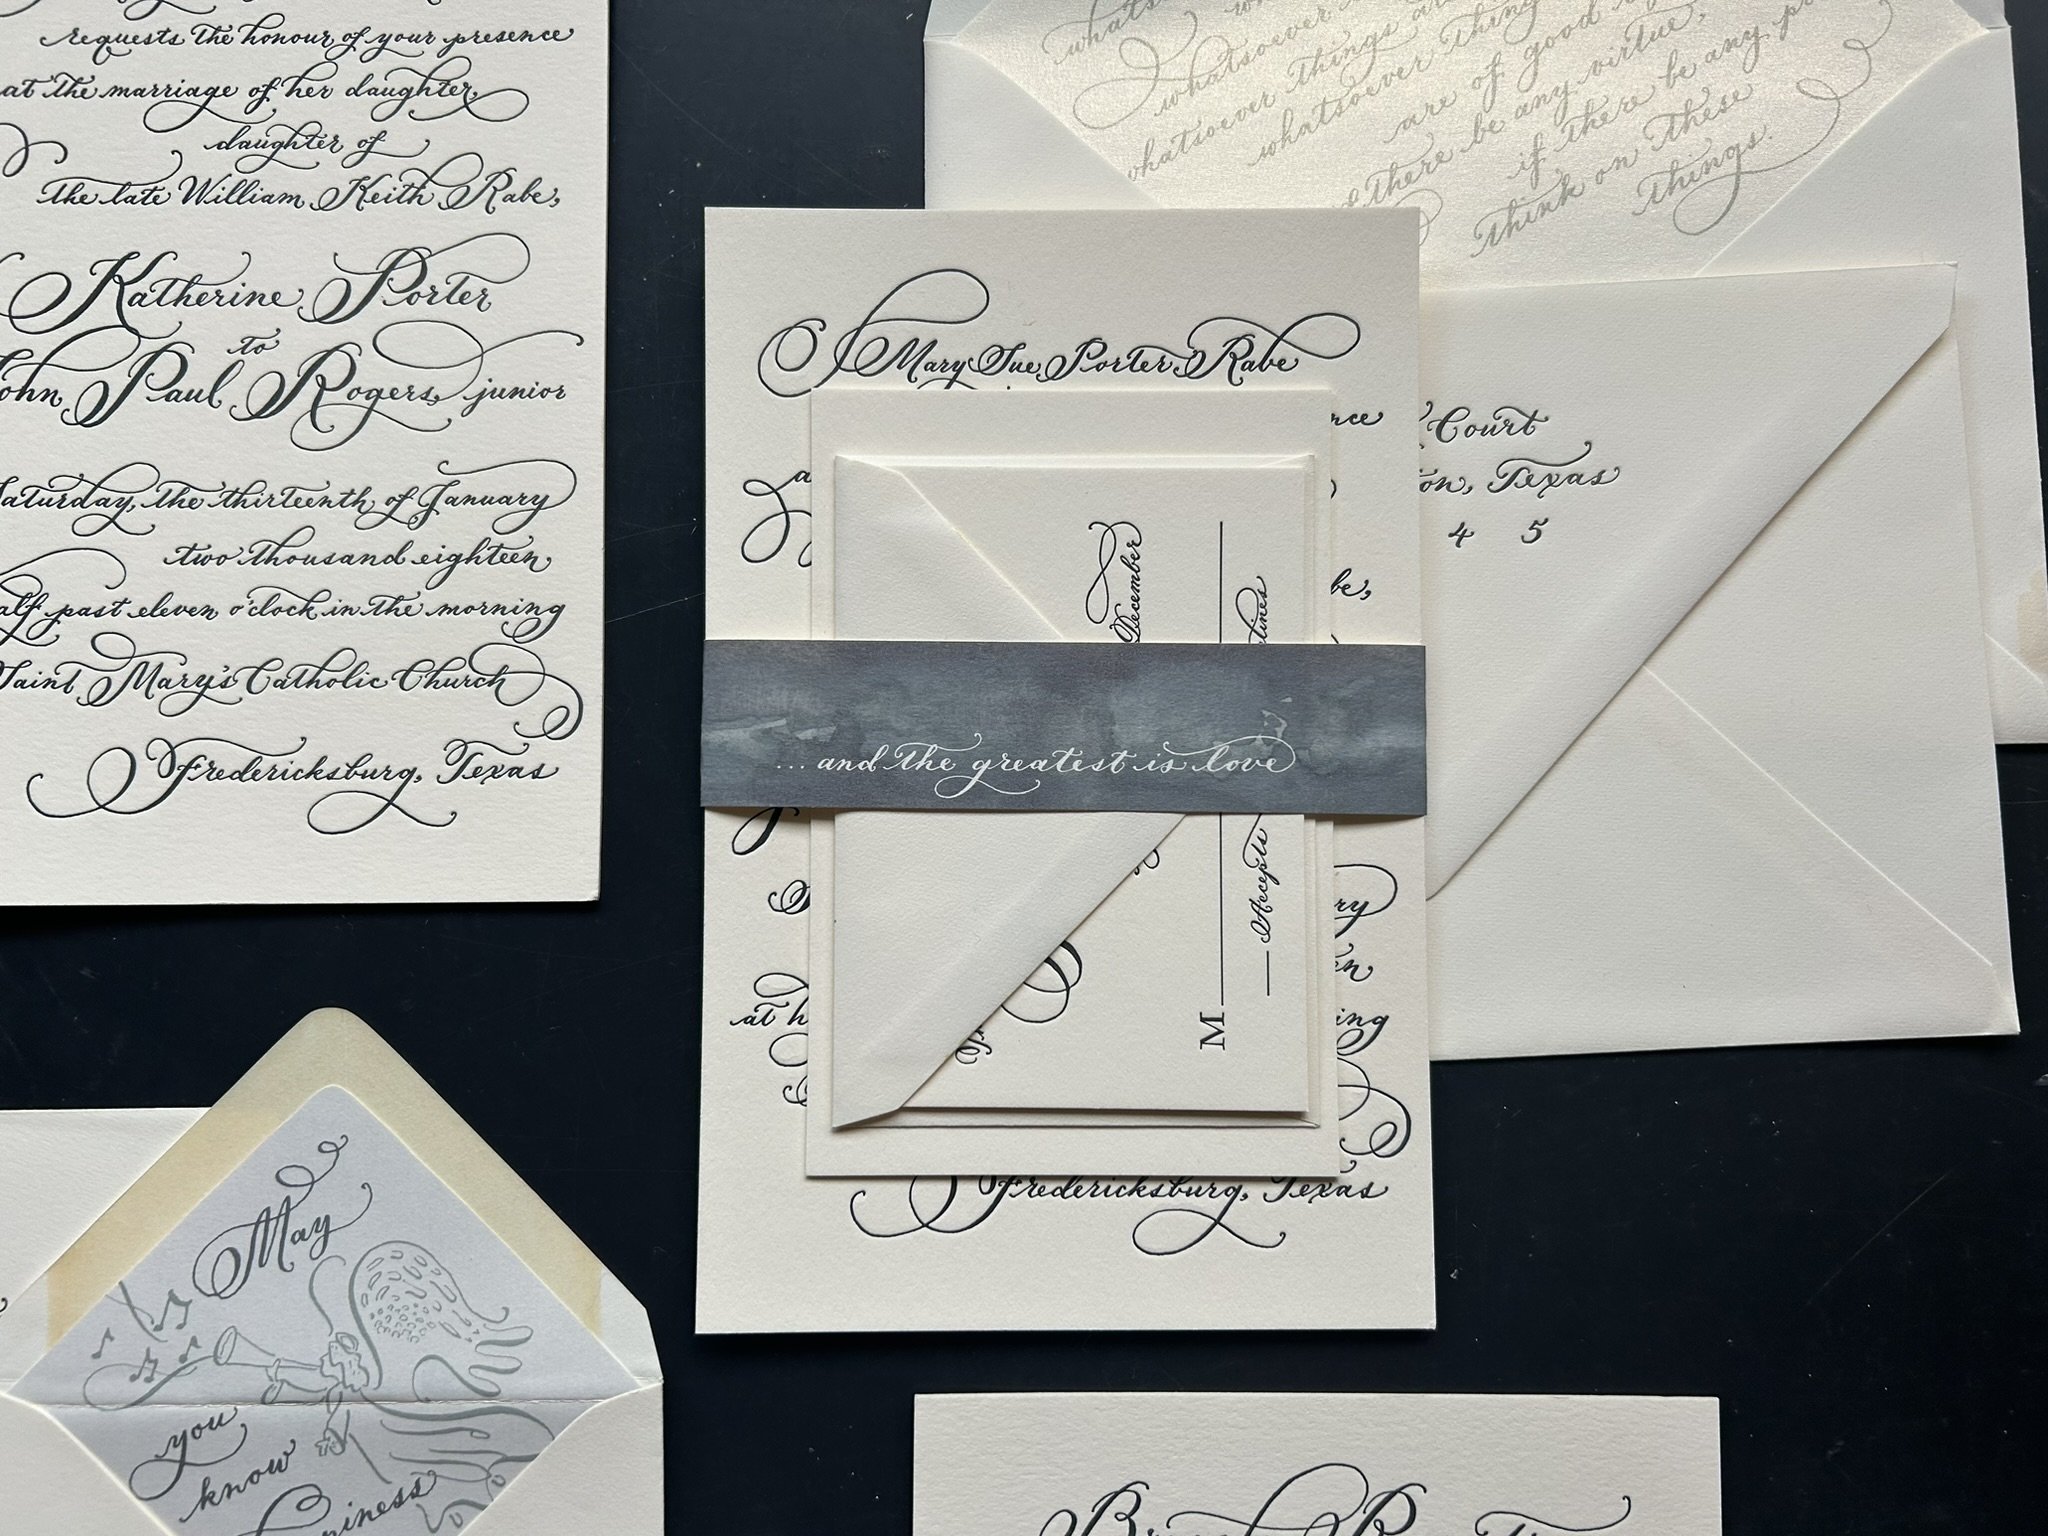 requests the honour of your presence
at the marriage of her daughter,
daughter of
the late William Keith Rabe,
Katherine Porter
to
John Paul Rogers, junior
Saturday, the thirteenth of January
two thousand eighteen,
half past eleven o'clock in the morning
Saint Mary's Catholic Church
Fredericksburg, Texas
whatsoever
whatsoever things
whatsoever things
whatsoever things
are of good
there be any virtue,
if there be any
think on these
things.
Mary Sue Porter Rabe
Court
Texas
4 5
December
M
Accepts
...and the greatest is love
at
Fredericksburg, Texas
May
you
know